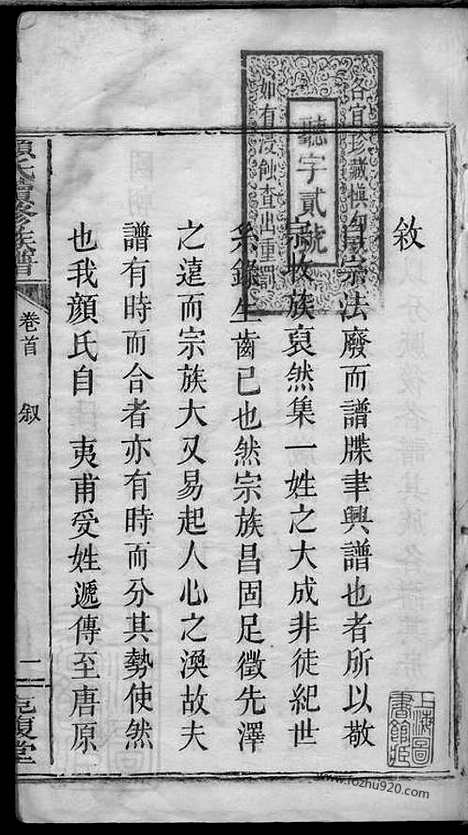 敘
自宗法廢而譜牒聿興譜也者所以敬
宗收族裒然集一姓之大成非徒紀世
系錄生齒已也然宗族昌固足徵先澤
之遠而宗族大又易起人心之渙故夫
譜有時而合者亦有時而分其勢使然
也我顏氏自 夷甫受姓遞傳至唐原
各宜珍藏慎勿
聽字貳號
如有浸蝕查出重罰
顏氏續修族譜
卷首
叙
一
克復堂
上海圖書館藏
www.fozhu920.com